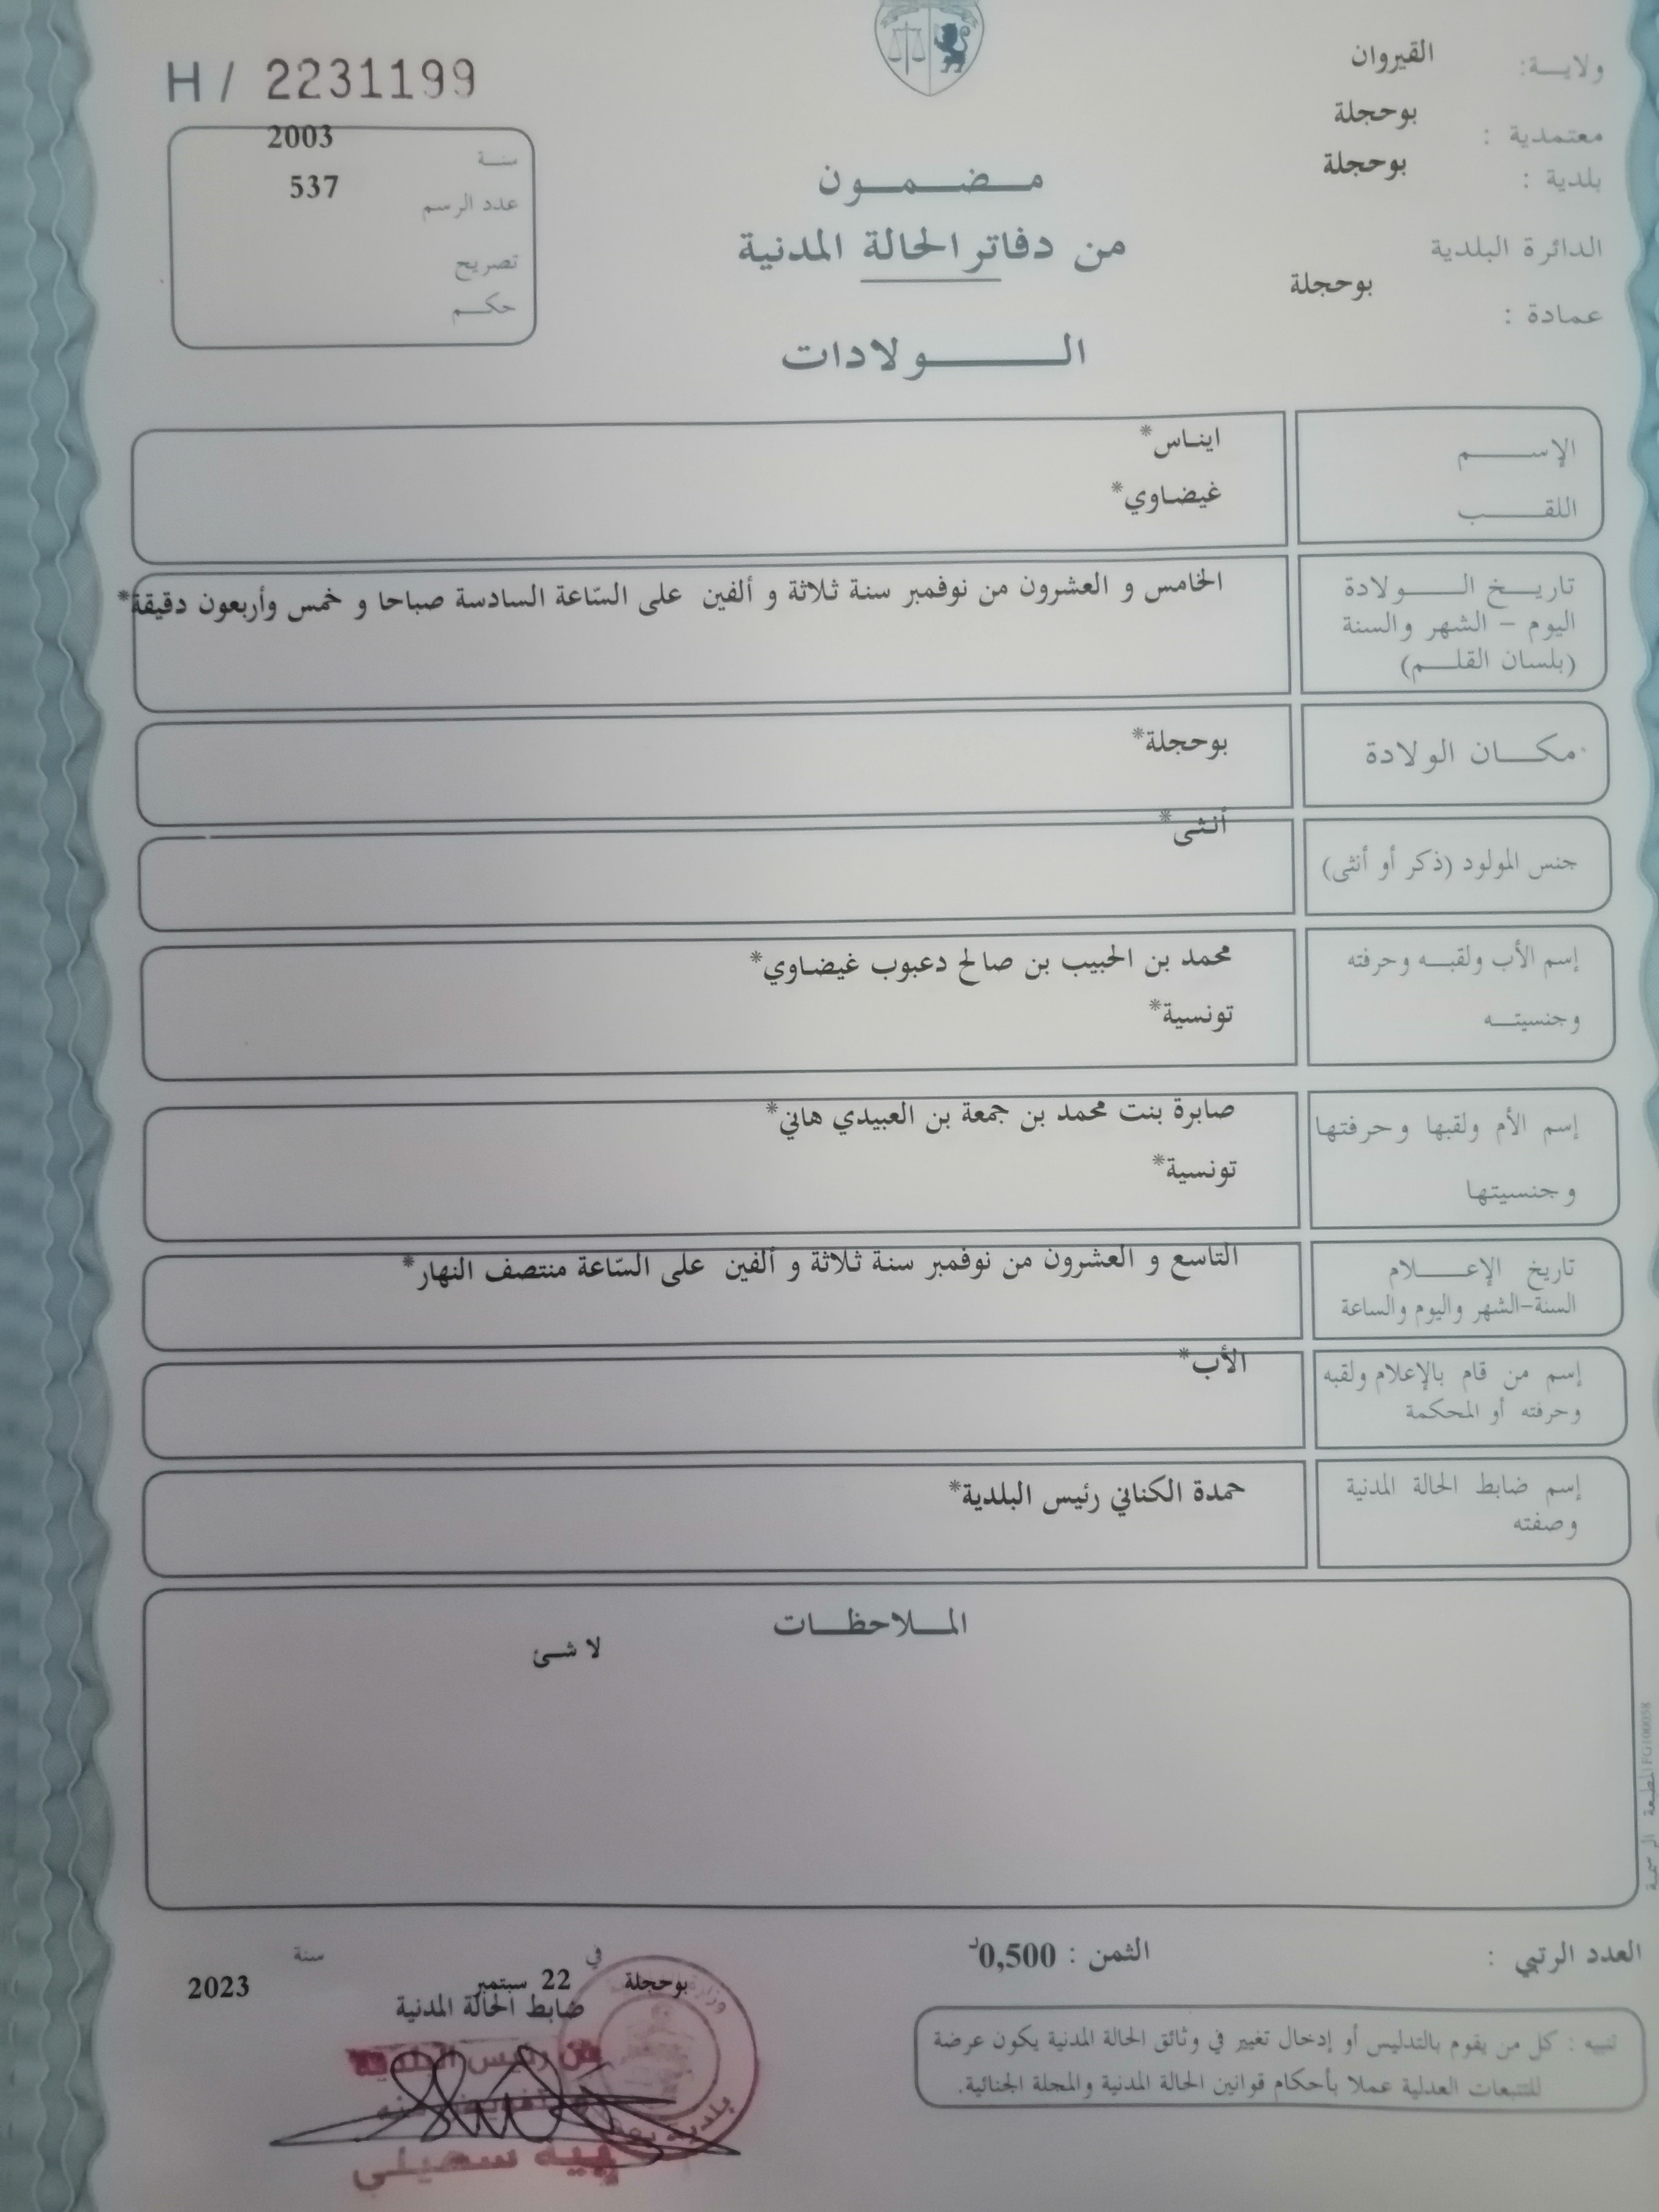 H / 2231199
ولايـــة: القيروان
معتمدية : بوحجلة
بلدية : بوحجلة
الدائرة البلدية
عمادة : بوحجلة
سنة 2003
عدد الرسم 537
تصريح
حكم
مضمون
من دفاتر الحالة المدنية
الولادات
الإسم ايناس*
اللقب غيضاوي*
تاريخ الولادة
اليوم – الشهر والسنة
(بلسان القلم)
الخامس و العشرون من نوفمبر سنة ثلاثة و ألفين على السّاعة السادسة صباحا و خمس وأربعون دقيقة*
مكان الولادة بوحجلة*
جنس المولود (ذكر أو أنثى) أنثى*
إسم الأب ولقبه وحرفته محمد بن الحبيب بن صالح دعبوب غيضاوي*
وجنسيته تونسية*
إسم الأم ولقبها وحرفتها صابرة بنت محمد بن جمعة بن العبيدي هاني*
وجنسيتها تونسية*
تاريخ الإعلام
السنة-الشهر واليوم والساعة
التاسع و العشرون من نوفمبر سنة ثلاثة و ألفين على السّاعة منتصف النهار*
إسم من قام بالإعلام ولقبه
وحرفته أو المحكمة
الأب*
إسم ضابط الحالة المدنية
وصفته
حمدة الكناني رئيس البلدية*
الملاحظات
لا شئ
المطبعة الرسمية
العدد الرتبي :
الثمن : 0,500د
في سنة
بوحجلة 22 سبتمبر 2023
ضابط الحالة المدنية
عن رئيس البلدية
تنبيه : كل من يقوم بالتدليس أو إدخال تغيير في وثائق الحالة المدنية يكون عرضة
للتتبعات العدلية عملا بأحكام قوانين الحالة المدنية والمجلة الجنائية.